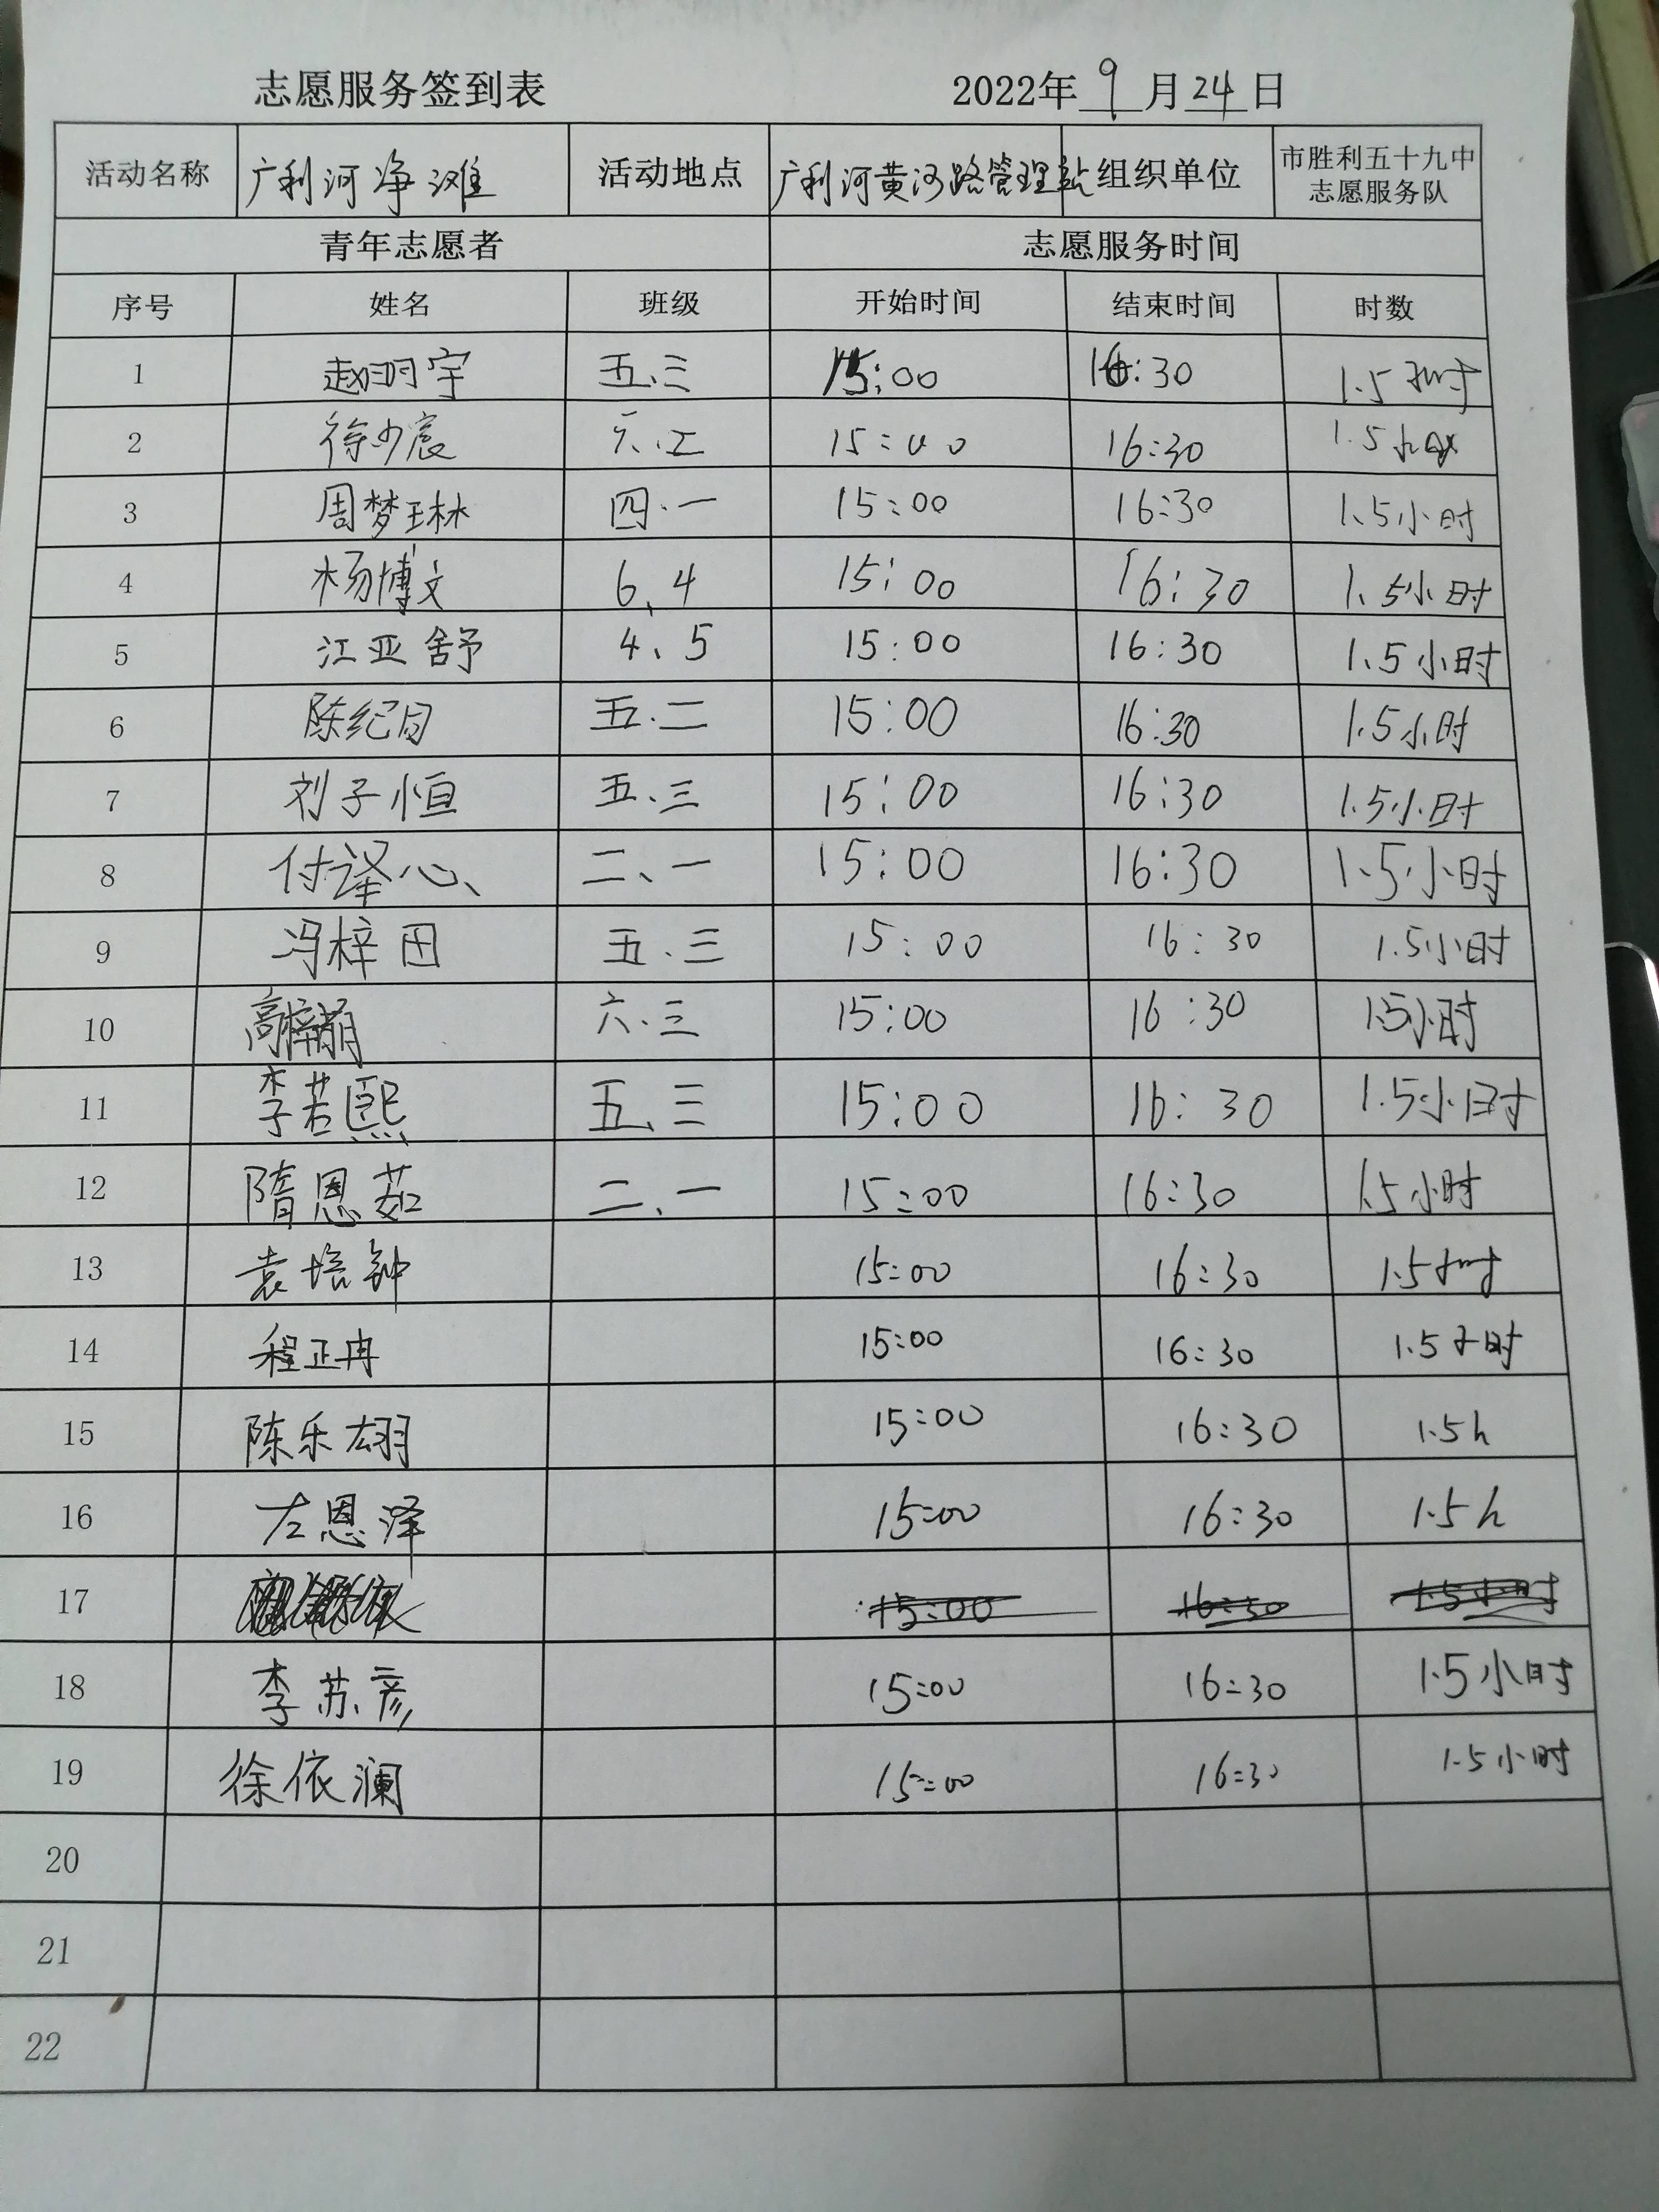 志愿服务签到表 2022年9月24日
活动名称 广利河净滩 活动地点 广利河黄河路管理站 组织单位 市胜利五十九中
志愿服务队
青年志愿者 志愿服务时间
序号 姓名 班级 开始时间 结束时间 时数
1 赵玥宇 五.三 15:00 16:30 1.5小时
2 徐少宸 六.二 15:00 16:30 1.5小时
3 周梦琳 四.一 15:00 16:30 1.5小时
4 杨博文 6、4 15:00 16:30 1.5小时
5 江亚舒 4、5 15:00 16:30 1.5小时
6 陈纪同 五.二 15:00 16:30 1.5小时
7 刘子恒 五.三 15:00 16:30 1.5小时
8 付译心 二、一 15:00 16:30 1.5小时
9 冯梓田 五.三 15:00 16:30 1.5小时
10 高梓萌 六.三 15:00 16:30 1.5小时
11 李若熙 五、三 15:00 16:30 1.5小时
12 隋恩茹 二、一 15:00 16:30 1.5小时
13 袁培钟 15:00 16:30 1.5小时
14 程正冉 15:00 16:30 1.5小时
15 陈乐翃 15:00 16:30 1.5h
16 左恩泽 15:00 16:30 1.5h
17 15:00 16:30 1.5小时
18 李苏彦 15:00 16:30 1.5小时
19 徐依澜 15:00 16:30 1.5小时
20
21
22